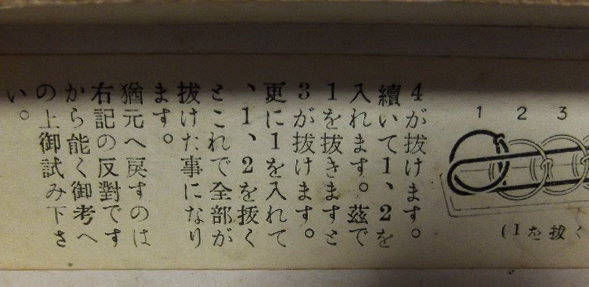 1 2 3
(1を抜く
4が抜けます。
續いて1、2を
入れます。茲で
1を抜きますと
3が抜けます。
更に1を入れて
、1、2を抜く
とこれで全部が
抜けた事になり
ます。
猶元へ戻すのは
右記の反對です
から能く御考へ
の上御試み下さ
い。